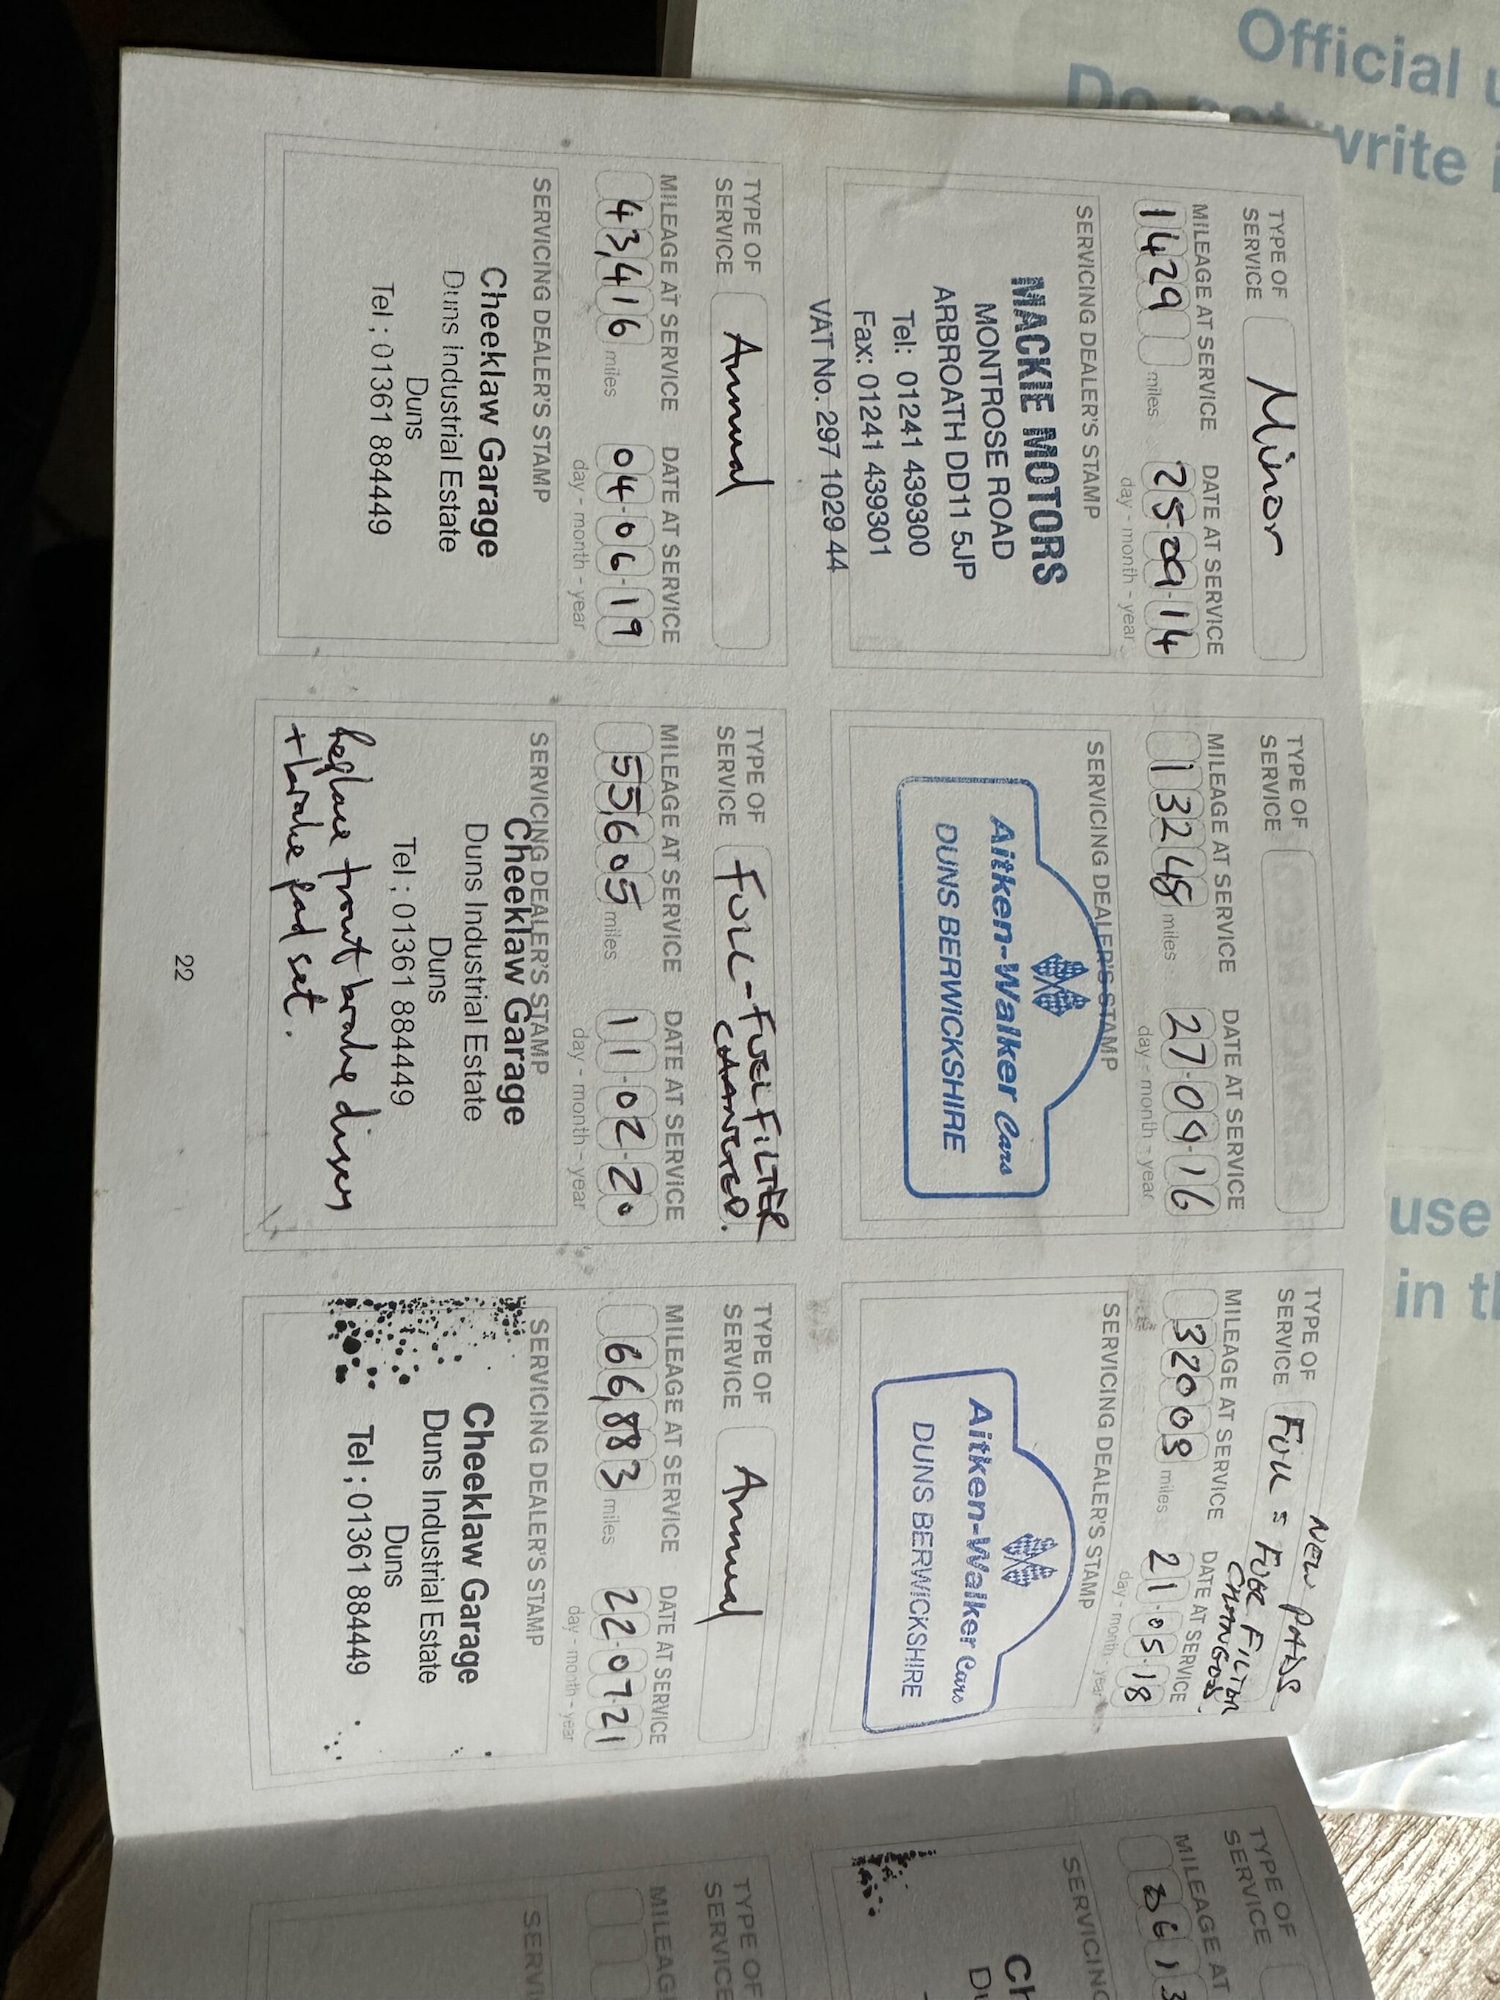 Official
Do not write
use
in th
TYPE OF
SERVICE
Minor
MILEAGE AT SERVICE DATE AT SERVICE
1429 miles 25-09-14
day - month - year
SERVICING DEALER'S STAMP
MACKIE MOTORS
MONTROSE ROAD
ARBROATH DD11 5JP
Tel: 01241 439300
Fax: 01241 439301
VAT No. 297 1029 44
TYPE OF
SERVICE
MILEAGE AT SERVICE DATE AT SERVICE
13248 miles 27-09-16
day - month - year
SERVICING DEALER'S STAMP
Aitken-Walker Cars
DUNS BERWICKSHIRE
NEW PADS
TYPE OF
SERVICE
FULL =
MILEAGE AT SERVICE DATE AT SERVICE
32008 miles 21-05-18
day - month - year
SERVICING DEALER'S STAMP
Aitken-Walker Cars
DUNS BERWICKSHIRE
TYPE OF
SERVICE
Annual
MILEAGE AT SERVICE DATE AT SERVICE
43,416 miles 04-06-19
day - month - year
SERVICING DEALER'S STAMP
Cheeklaw Garage
Duns Industrial Estate
Duns
Tel ; 01361 884449
TYPE OF
SERVICE
FULL - FUEL FILTER
CHANGED.
MILEAGE AT SERVICE DATE AT SERVICE
55,605 miles 11-02-20
day - month - year
SERVICING DEALER'S STAMP
Cheeklaw Garage
Duns Industrial Estate
Duns
Tel ; 01361 884449
Replace front brake discs
+ brake pad set.
TYPE OF
SERVICE
Annual
MILEAGE AT SERVICE DATE AT SERVICE
66,883 miles 22-07-21
day - month - year
SERVICING DEALER'S STAMP
Cheeklaw Garage
Duns Industrial Estate
Duns
Tel ; 01361 884449
22
TYPE OF
SERVICE
MILEAGE AT
SERVICING
Ch
Du
TYPE OF
SERVICE
MILEAG
SERVI